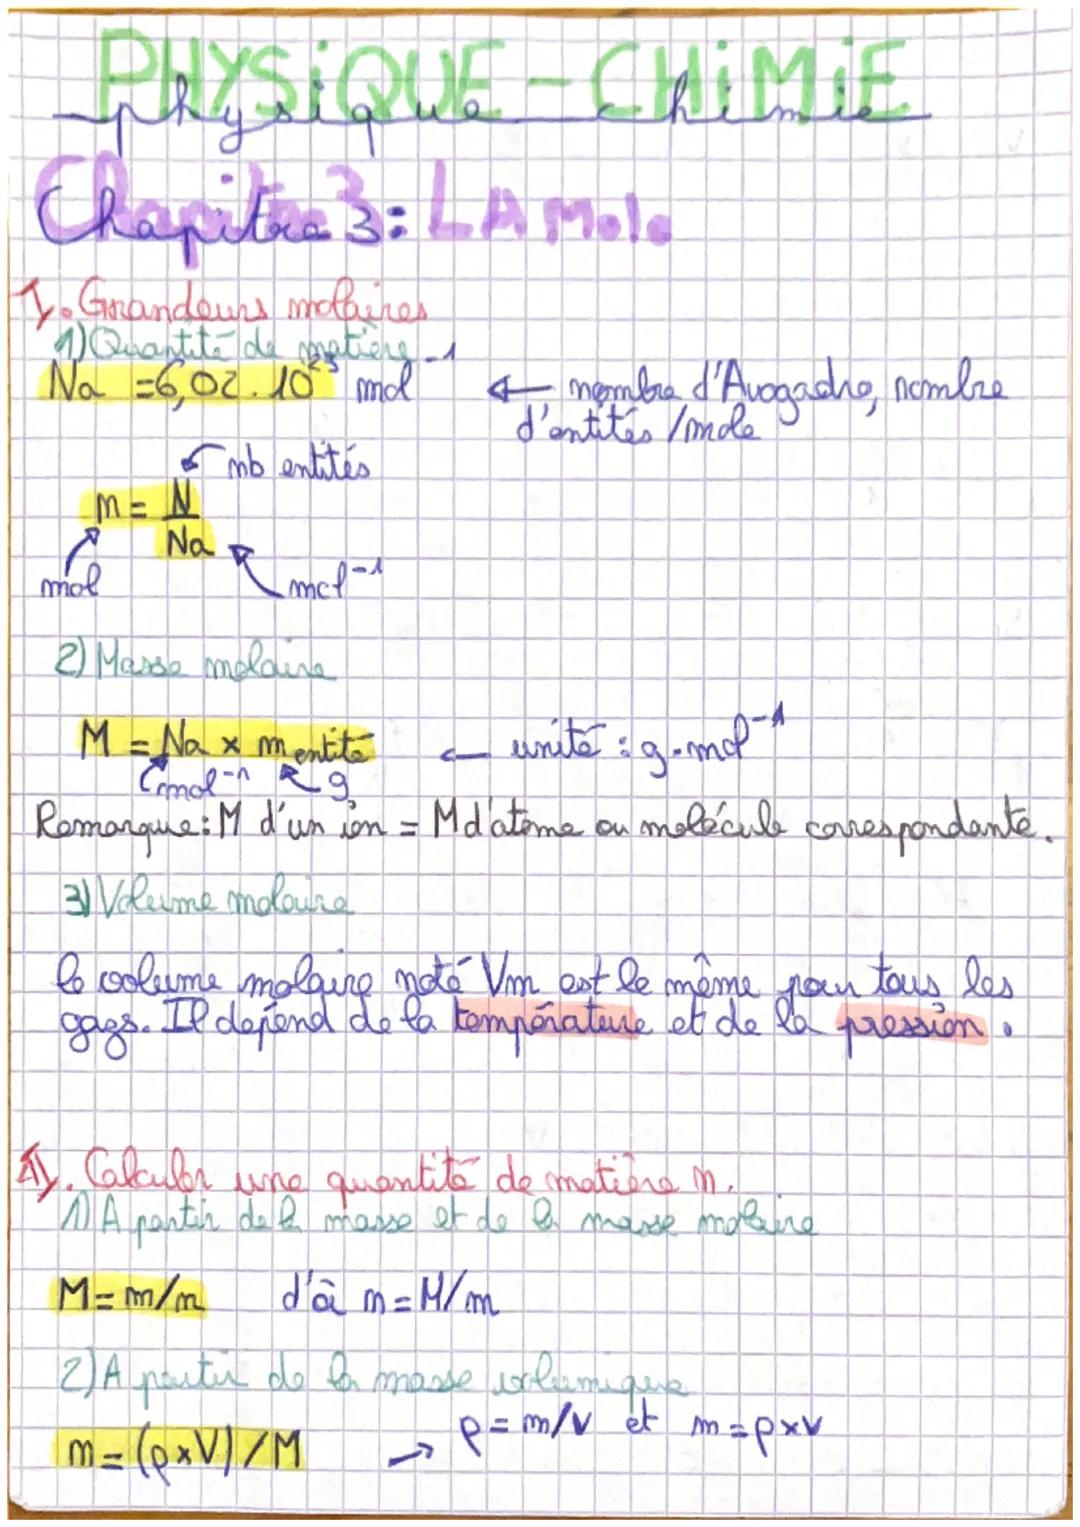 PHYSiQUE - CHiMiE
physique chimie
Chapitre 3: LA Mole
I. Grandeurs molaires
1) Quantité de matière
Na = 6,02 . 10²³ mol⁻¹ ← nombre d'Avogadro, nombre
d'entités /mole
nb entités
n = N
Na
mol mol⁻¹
2) Masse molaire
M = Na x m entité ← unité : g.mol⁻¹
mol⁻¹ g
Remarque: M d'un ion = M d'atome ou molécule correspondante.
3) Volume molaire
le volume molaire noté Vm est le même pour tous les
gazs. Il dépend de la température et de la pression.
II. Calculer une quantité de matière n.
1) A partir de la masse et de la masse molaire
M = m/n d'où n = M/m
2) A partir de la masse volumique
n = (ρxV)/M → ρ = m/V et m = ρxV